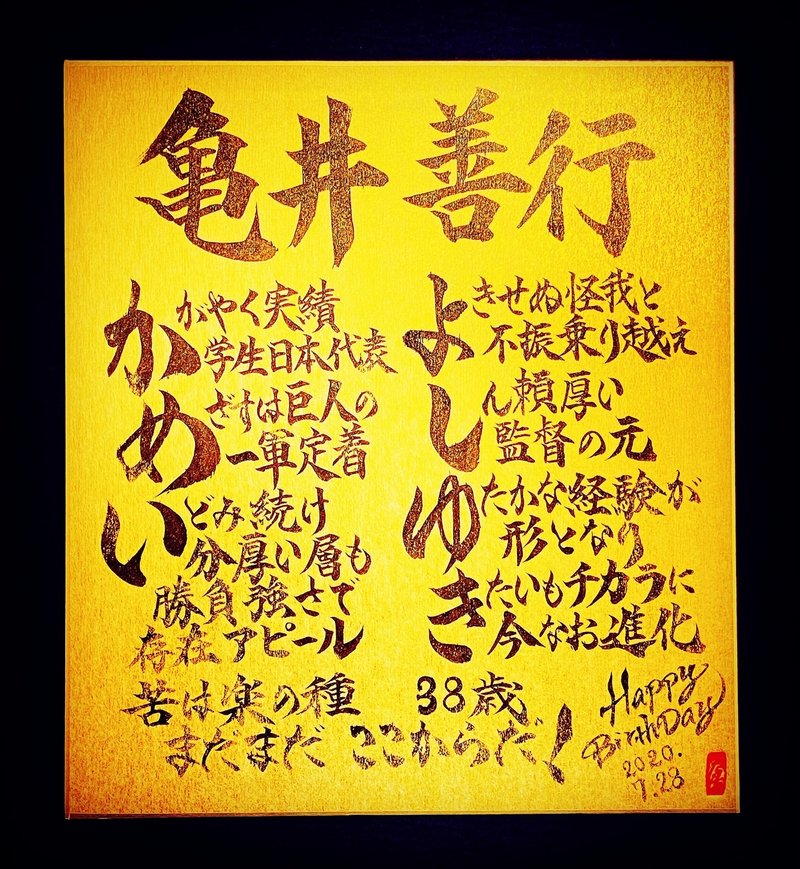 亀井 善行
かがやく実績
学生日本代表
めざすは巨人の
一軍定着
いどみ続け
分厚い層も
勝負強さで
存在アピール
よきせぬ怪我と
不振乗り越え
しん頼厚い
監督の元
ゆたかな経験が
形となり
きたいもチカラに
今なお進化
苦は楽の種 38歳
まだまだ ここからだ!
Happy
BirthDay
2020.
7.28